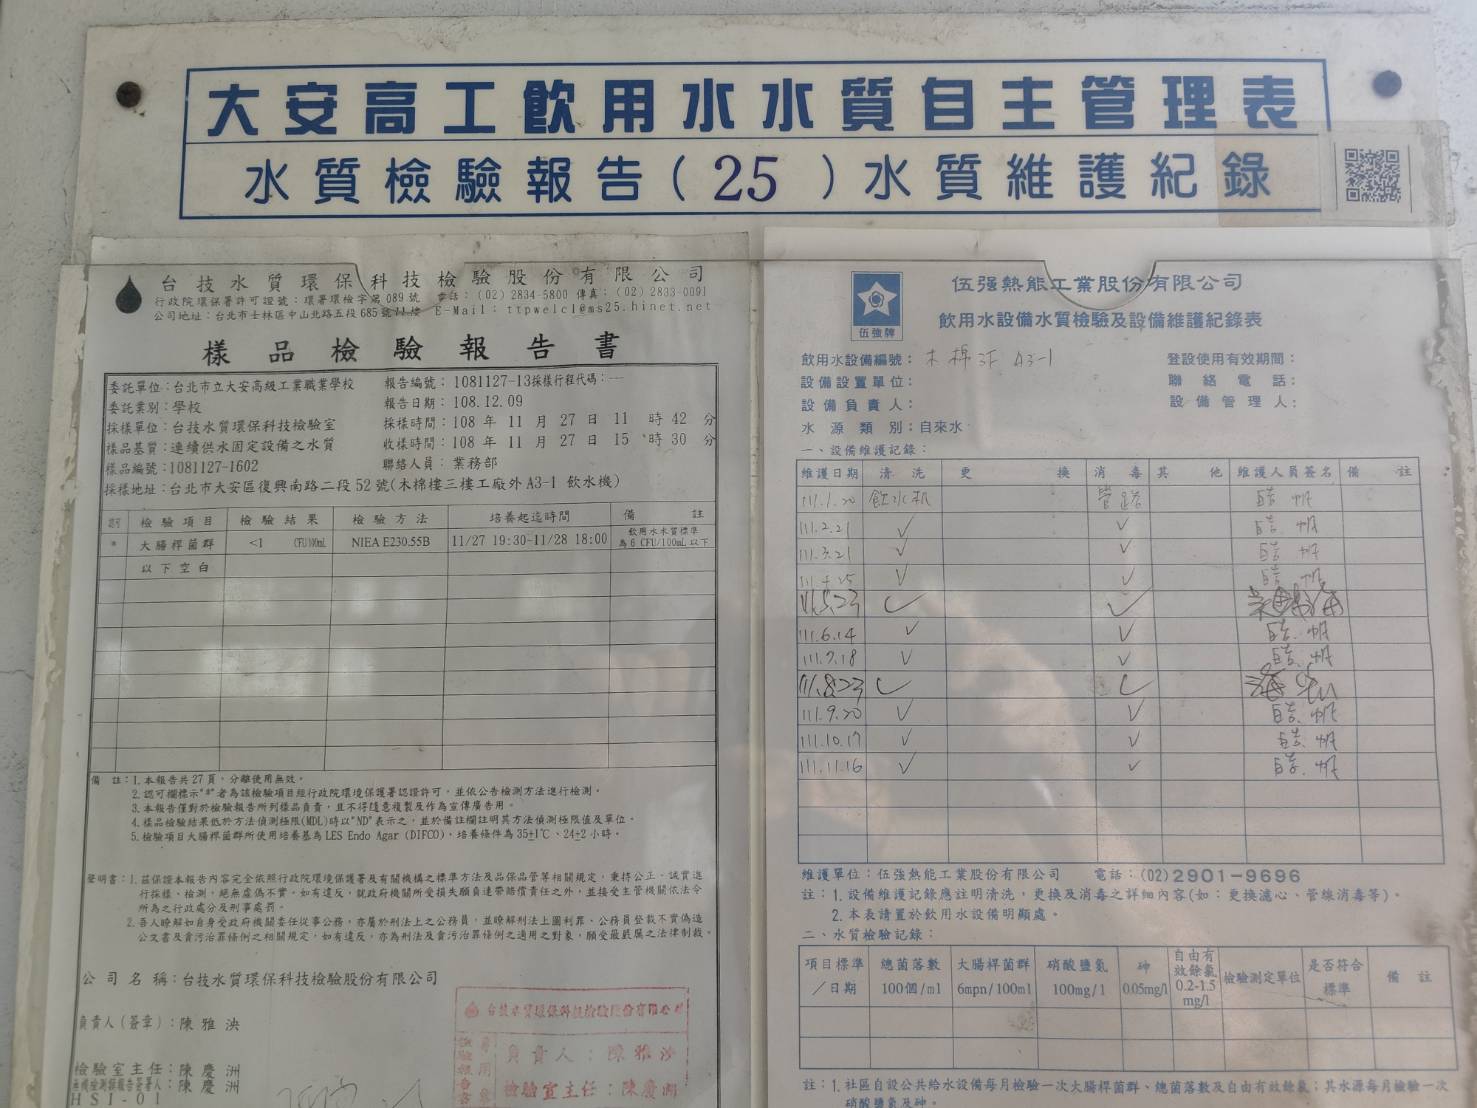 大安高工飲用水水質自主管理表
水質檢驗報告(25)水質維護紀錄
台技水質環保科技檢驗股份有限公司
行政院環保署許可證號：環署環檢字第089號 電話：(02)2834-5800 傳真：(02)2833-0091
公司地址：台北市士林區中山北路五段685號11樓 E-Mail：ttpwelcl@ms25.hinet.net
樣品檢驗報告書
委託單位：台北市立大安高級工業職業學校 報告編號：1081127-13採樣行程代碼：---
委託業別：學校 報告日期：108.12.09
採樣單位：台技水質環保科技檢驗室 採樣時間：108 年 11 月 27 日 11 時 42 分
樣品基質：連續供水固定設備之水質 收樣時間：108 年 11 月 27 日 15 時 30 分
樣品編號：1081127-1602 聯絡人員：業務部
採樣地址：台北市大安區復興南路二段52號(木棉樓三樓工廠外A3-1 飲水機)
檢驗項目 檢驗結果 檢驗方法 培養起迄時間 備註
* 大腸桿菌群 <1 CFU/100mL NIEA E230.55B 11/27 19:30~11/28 18:00 飲用水水質標準為6 CFU/100mL以下
以下空白
備 註：1.本報告共27頁，分離使用無效。
2.認可欄標示"#"者為該檢驗項目經行政院環境保護署認證許可，並依公告檢測方法進行檢測。
3.本報告僅對於檢驗報告所列樣品負責，且不得隨意複製及作為宣傳廣告用。
4.樣品檢驗結果低於方法偵測極限(MDL)時以"ND"表示之，並於備註欄註明其方法偵測極限值及單位。
5.檢驗項目大腸桿菌群所使用培養基為LES Endo Agar (DIFCO)，培養條件為35±1℃、24±2小時。
聲明書：1.茲保證本報告內容完全依照行政院環境保護署及有關機構之標準方法及品保品管等相關規定，秉持公正、誠實進
行採樣、檢測，絕無虛偽不實，如有違反，就政府機關所受損失願負連帶賠償責任之外，並接受主管機關依法令
所為之行政處分及刑事處罰。
2.吾人瞭解如自身受政府機關委任從事公務，亦屬於刑法上之公務員，並瞭解刑法上圖利罪、公務員登載不實偽造
公文書及貪污治罪條例之相關規定，如有違反，亦為刑法及貪污治罪條例之適用之對象，願受最嚴厲之法律制裁。
公司名稱：台技水質環保科技檢驗股份有限公司
負責人(簽章)：陳雅泱
檢驗室主任：陳慶洲
陳慶洲
HSI-01
台技水質環保科技檢驗股份有限公司
負責人：陳雅泱
檢驗室主任：陳慶洲
伍強牌
伍強熱能工業股份有限公司
飲用水設備水質檢驗及設備維護紀錄表
飲用水設備編號：木棉3F A3-1 登設使用有效期間：
設備設置單位： 聯絡電話：
設備負責人： 設備管理人：
水源類別：自來水
一、設備維護記錄：
維護日期 清洗 更換 消毒 其他 維護人員簽名 備註
111.1.20 飲水机 管路
111.2.21 ✓ ✓
111.3.21 ✓ ✓
111.4.25 ✓ ✓
111.5.23 ✓ ✓
111.6.14 ✓ ✓
111.7.18 ✓ ✓
111.8.23 ✓ ✓
111.9.20 ✓ ✓
111.10.17 ✓ ✓
111.11.16 ✓ ✓
維護單位：伍強熱能工業股份有限公司 電話：(02)2901-9696
註：1.設備維護記錄應註明清洗，更換及消毒之詳細內容(如：更換濾心、管線消毒等)。
2.本表請置於飲用水設備明顯處。
二、水質檢驗記錄：
項目標準／日期 總菌落數100個/ml 大腸桿菌群6mpn/100ml 硝酸鹽氮100mg/l 砷0.05mg/l 自由有效餘氯0.2-1.5mg/l 檢驗測定單位 是否符合標準 備註
註：1.社區自設公共給水設備每月檢驗一次大腸桿菌群、總菌落數及自由有效餘氯；其水源每月檢驗一次
硝酸鹽氮及砷。